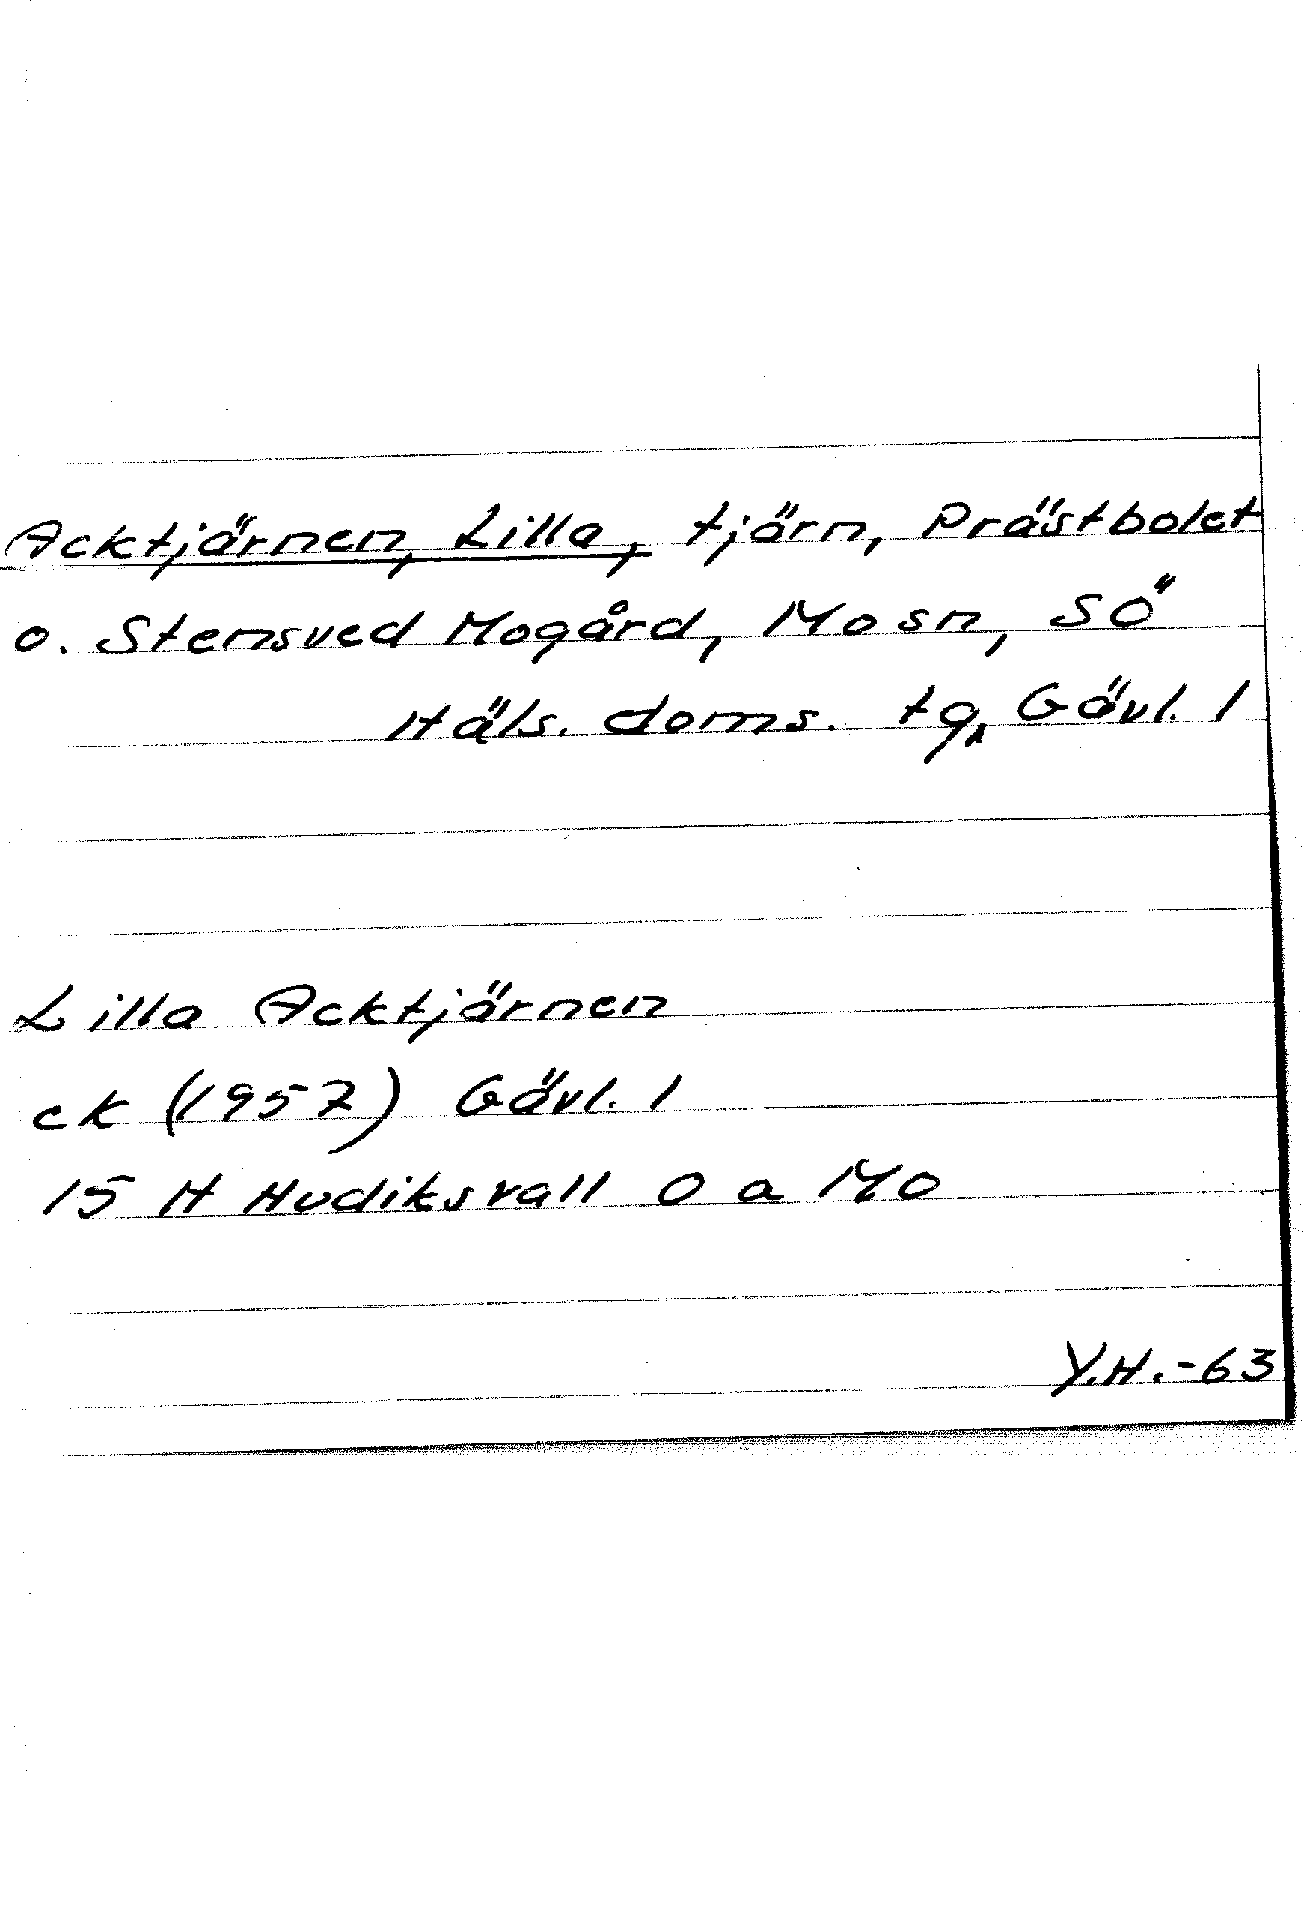 Acktjärnen, Lilla, tjärn, Prästbolet
o. Stensved Mogård, Mo sn, SÖ
Häls. doms. tg, Gävl. l
Lilla Acktjärnen
ek (1957) Gävl. l
15 H Hudiksvall O a MO
Y.H.-63